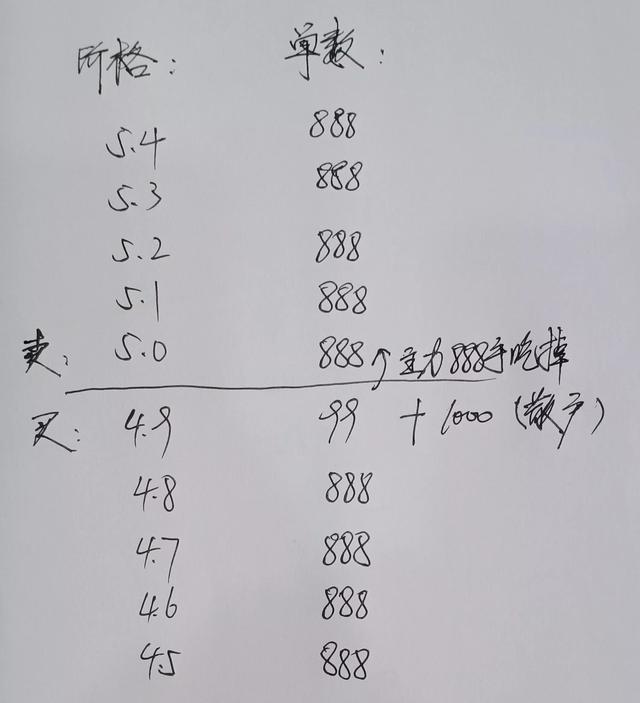 价格： 单数：
5.4 888
5.3 888
5.2 888
5.1 888
卖： 5.0 888 ↑主力888手吃掉
买： 4.9 99 + 1000 (散户)
4.8 888
4.7 888
4.6 888
4.5 888